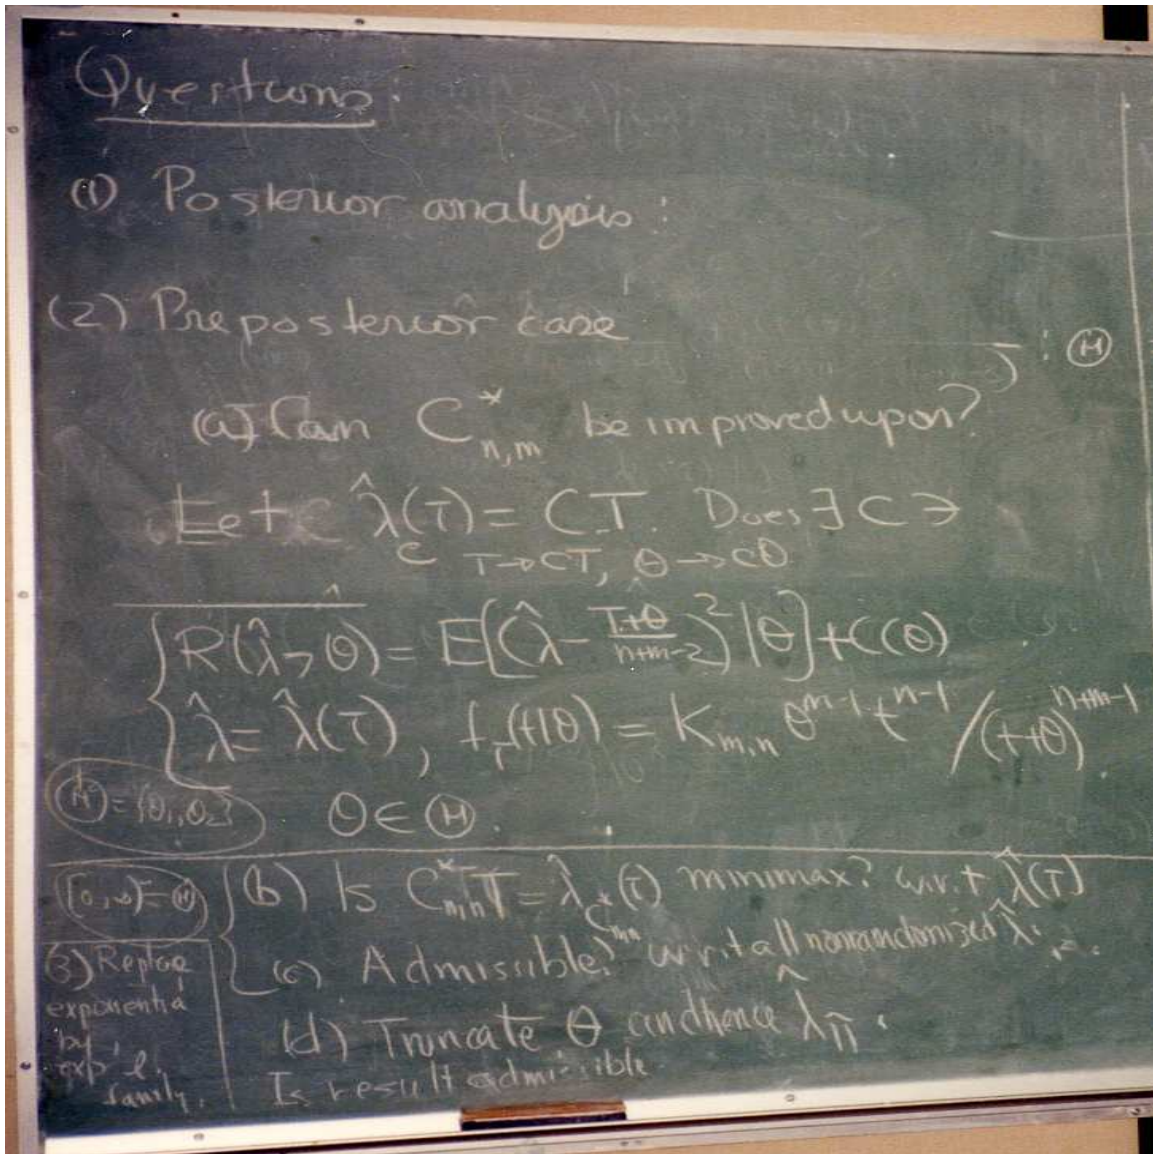 Questions:
(1) Posterior analysis:
(2) Preposterior case
: Ⓗ
(a) Can C*n,m be improved upon?
Let λ̂c(T) = CT. Does ∃ C ∋
T→CT, θ→cθ
R(λ̂, θ) = E[(λ̂ - (T+θ)/(n+m-2))² | θ] + C(θ)
λ̂ = λ̂(T), fT(t|θ) = Km,n θ^(m-1) t^(n-1) / (t+θ)^(n+m-1)
Ⓗ = {θ1, θ2} θ ∈ Ⓗ.
[0,∞) = Ⓗ
(b) Is C*m,n T = λ̂C*mn(T) minimax? w.r.t λ̂(T)
(c) Admissible? w.r.t all nonrandomized λ̂.
(d) Truncate θ and hence λ̂π.
Is result admissible
(3) Replace
exponential
by
exp'l.
family.